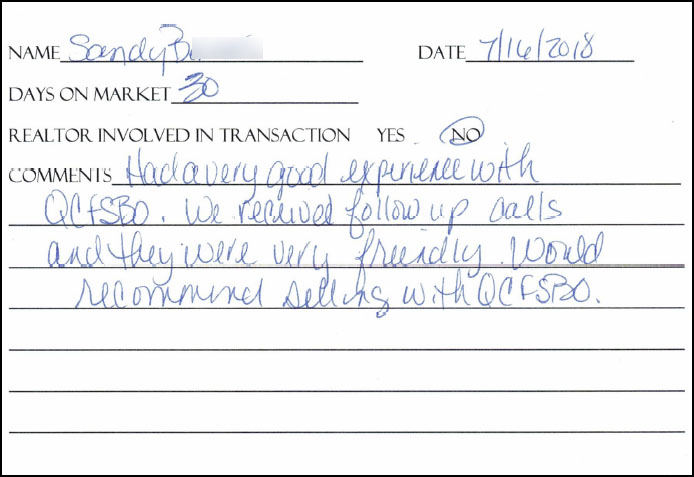 NAME Sandy B
DATE 7/16/2018
DAYS ON MARKET 30
REALTOR INVOLVED IN TRANSACTION YES NO
COMMENTS Had a very good experience with
QCFSBO. We received follow up calls
and they were very friendly. Would
recommend selling with QCFSBO.